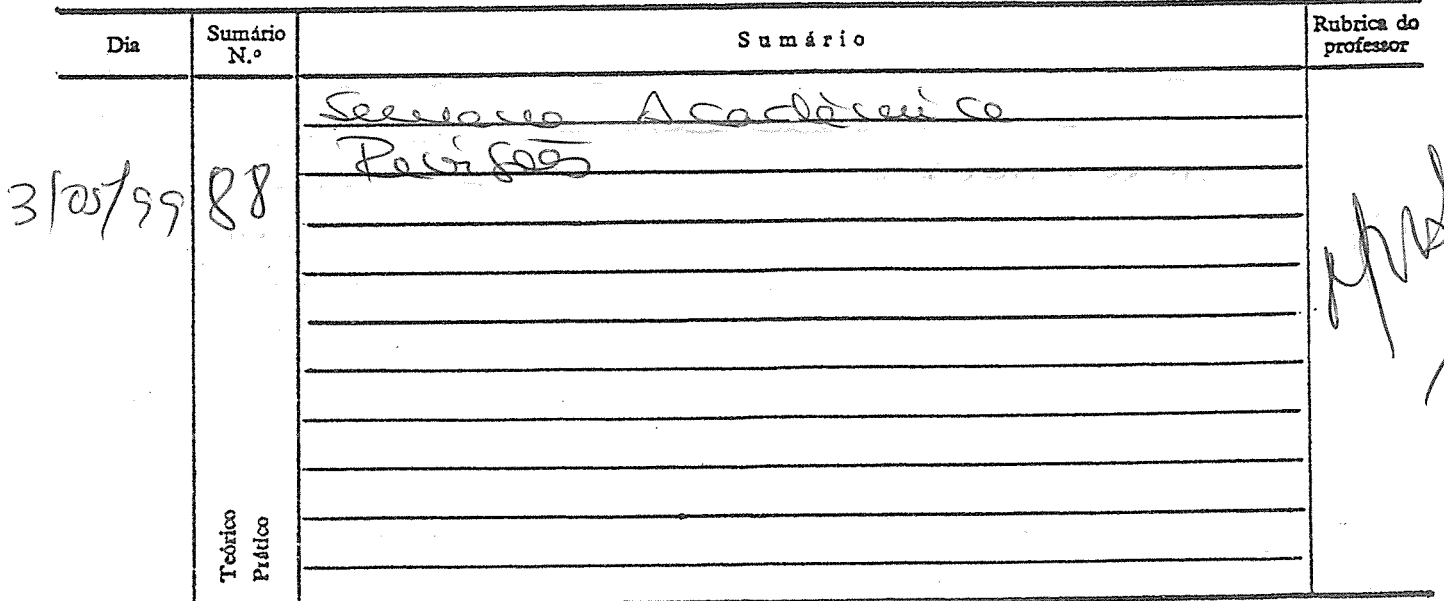 Dia
Sumário N.º
Sumário
Rubrica do professor
3/05/99
88
Semana Académica
Revisões
Teórico
Prático